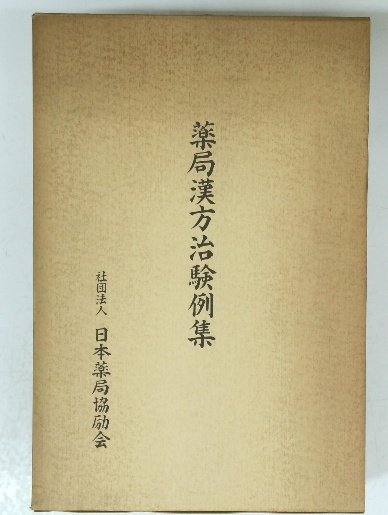 薬局漢方治験例集
社団法人 日本薬局協励会